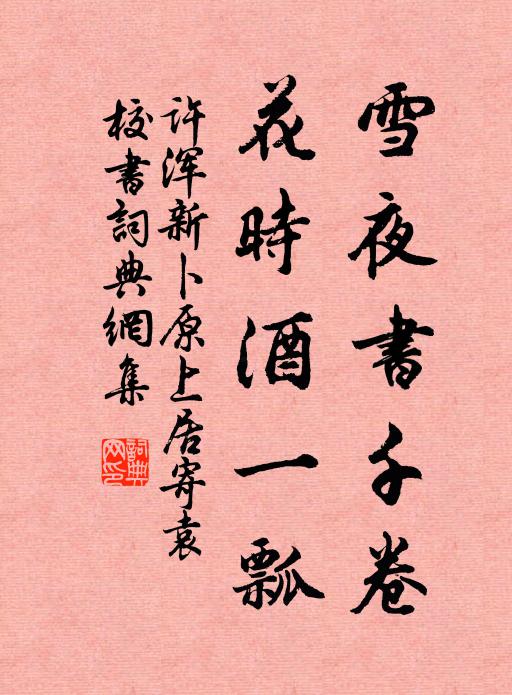 雪夜書千卷
花時酒一瓢
許渾新卜原上居寄袁
校書詞典網集
詞典网印